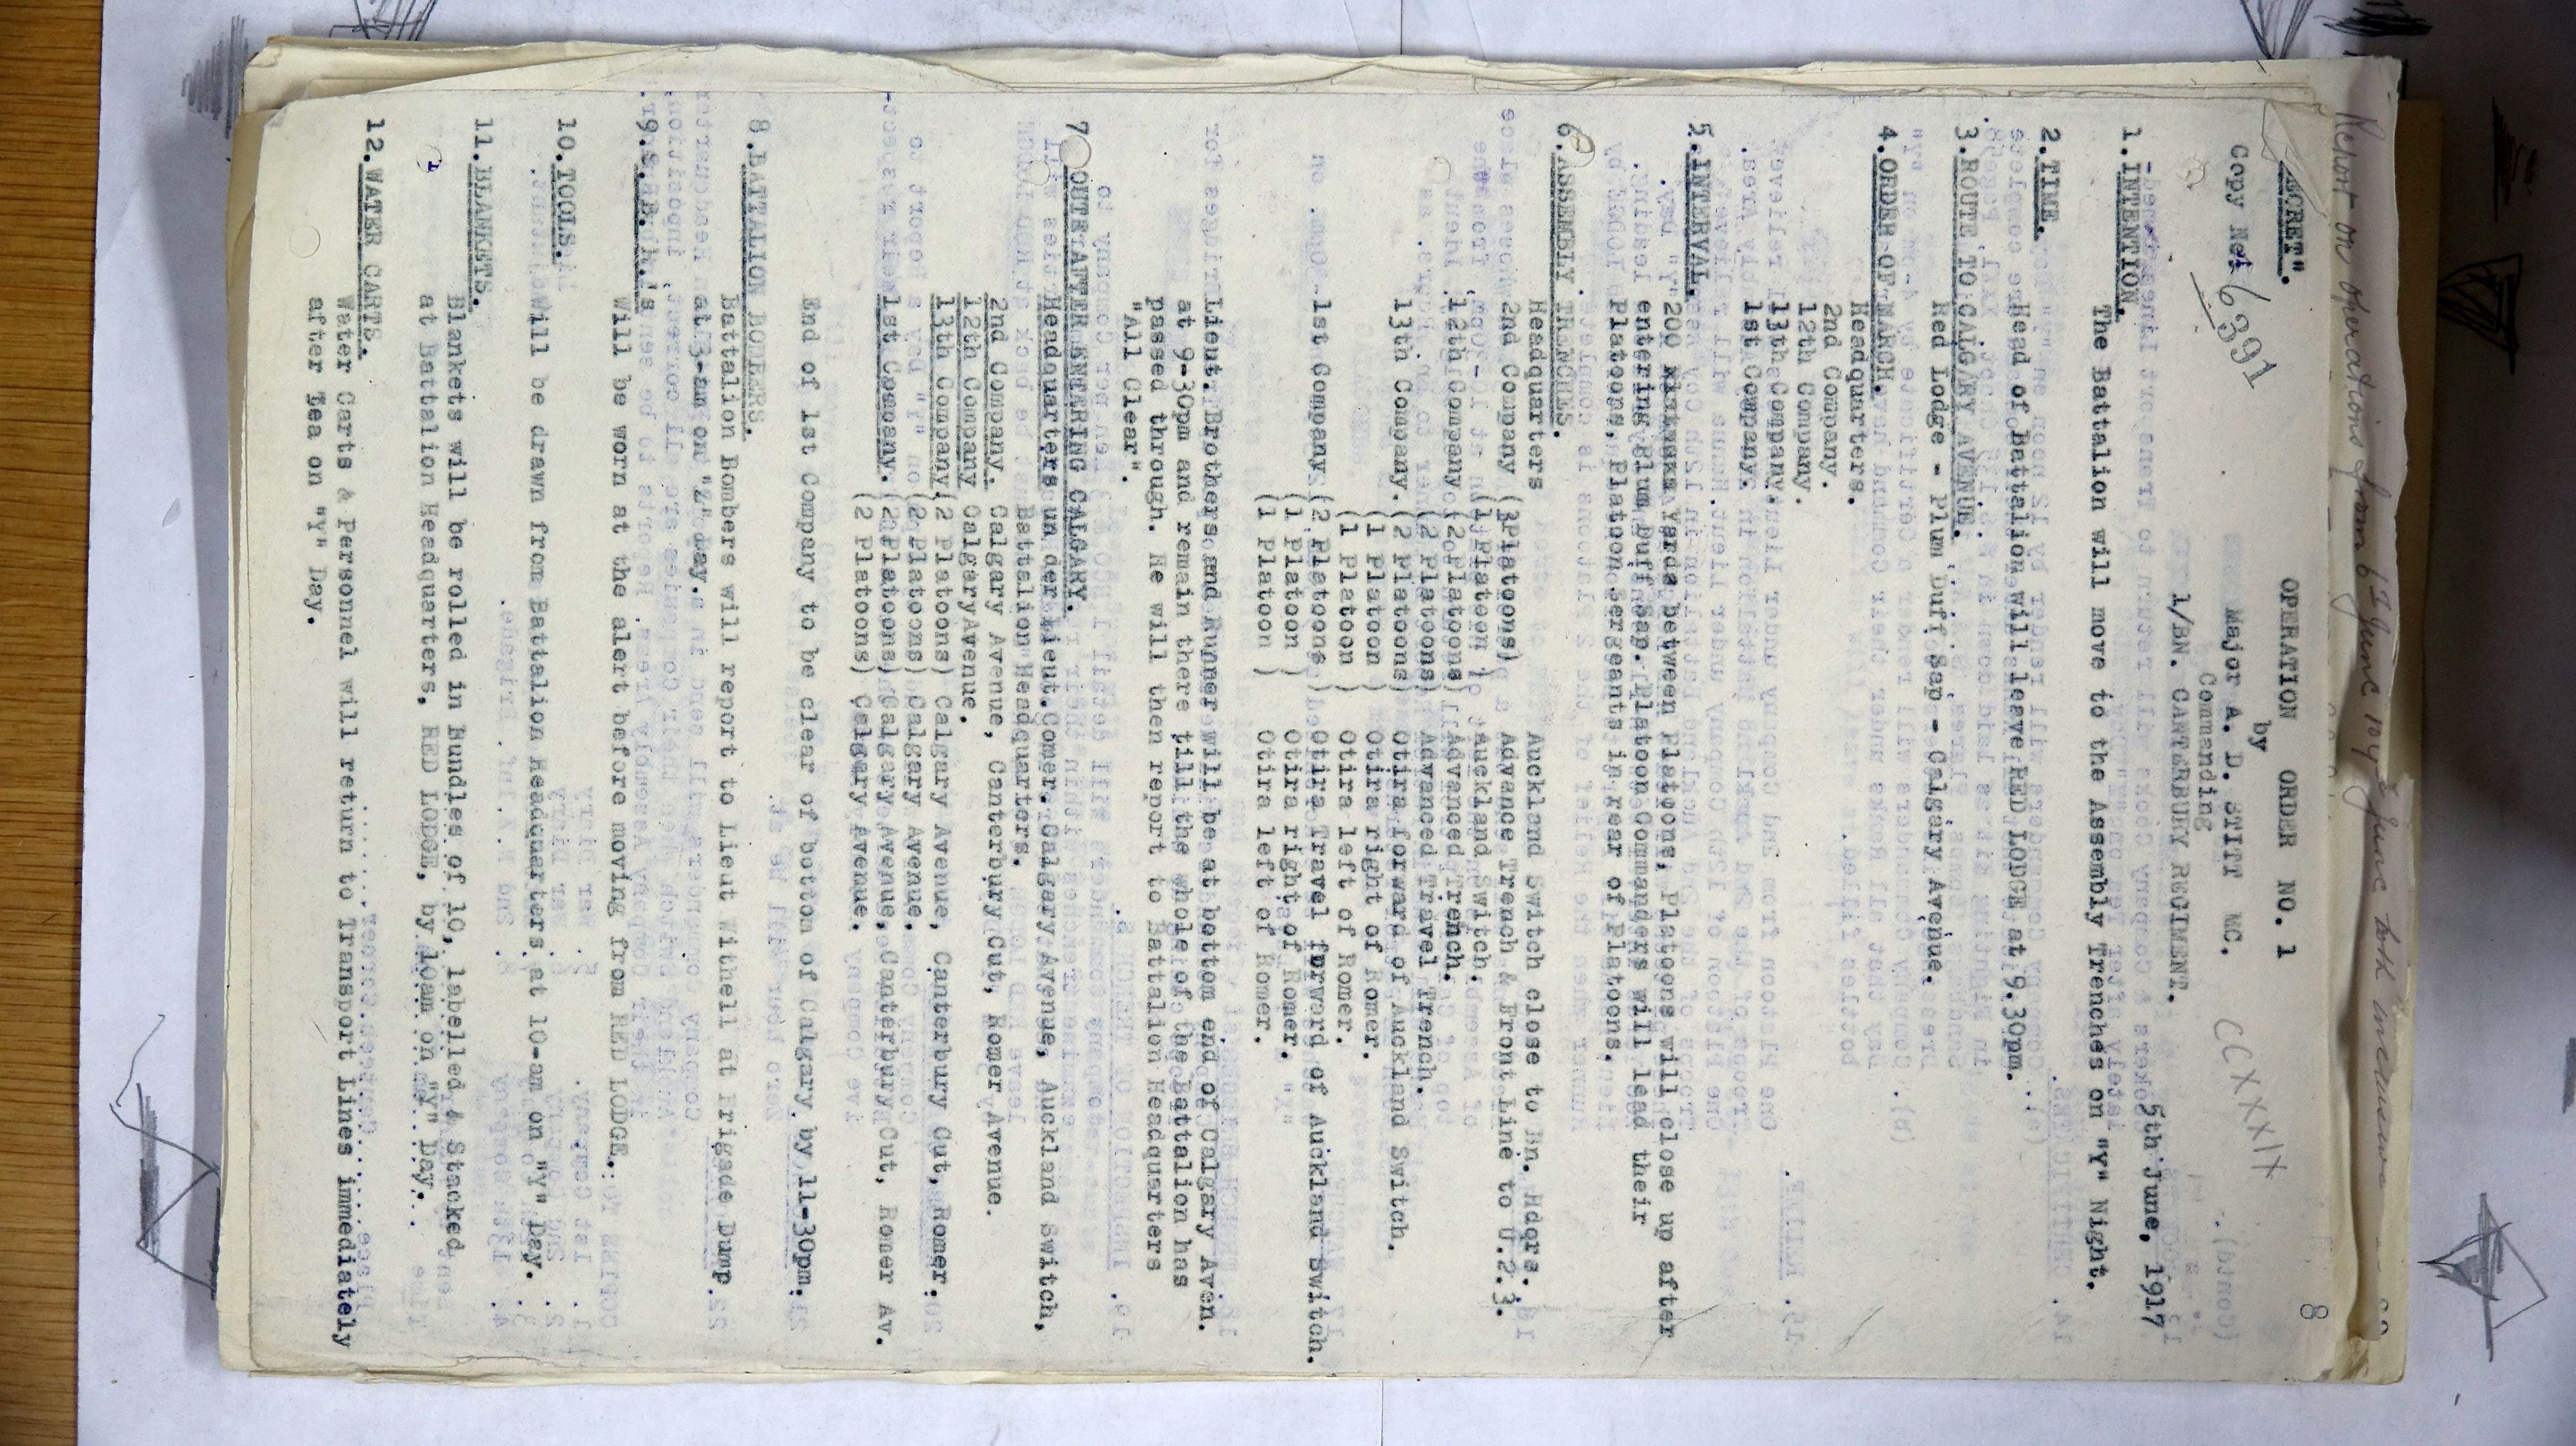 Report on operations from 6th June 1917 to June both inclusive
8
"SECRET".
OPERATION ORDER NO. 1
by
Copy No. 6391
Major A. D. STITT MC.
CCXXIX
Commanding
1/BN. CANTERBURY REGIMENT.
5th June, 1917
1. INTENTION.
The Battalion will move to the Assembly Trenches on "Y" Night.
2. TIME.
Head of Battalion will leave RED LODGE at 9.30pm.
3. ROUTE TO CALGARY AVENUE.
Red Lodge - Plum Duff Sap - Calgary Avenue.
4. ORDER OF MARCH.
Headquarters.
2nd Company.
12th Company.
13th Company.
1st Company.
5. INTERVAL.
200 yards between Platoons, Platoons will close up after
entering Plum Duff Sap. Platoon Commanders will lead their
Platoons, Platoon Sergeants in rear of Platoons.
6. ASSEMBLY TRENCHES.
Headquarters Auckland Switch close to Bn. Hdqrs.
2nd Company (3 Platoons) Advance Trench & Front Line to U.2.3.
(1 Platoon ) Auckland Switch.
12th Company (2 Platoons) Advanced Trench.
(2 Platoons) Advanced Travel Trench.
13th Company. (2 Platoons) Otira forward of Auckland Switch.
(1 Platoon ) Otira right of Romer.
(1 Platoon ) Otira left of Romer.
1st Company (2 Platoons ) Otira Travel forward of Auckland Switch.
(1 Platoon ) Otira right of Romer.
(1 Platoon ) Otira left of Romer.
Lieut. Brothers and Runner will be at bottom end of Calgary Aven.
at 9-30pm and remain there till the whole of the Battalion has
passed through. He will then report to Battalion Headquarters
"All Clear".
7. ROUTE AFTER ENTERING CALGARY.
Headquarters under Lieut. Comer. Calgary Avenue, Auckland Switch,
Battalion Headquarters.
2nd Company. Calgary Avenue, Canterbury Cut, Romer Avenue.
12th Company Calgary Avenue.
13th Company (2 Platoons) Calgary Avenue, Canterbury Cut, Romer.
(2 Platoons) Calgary Avenue.
1st Company. (2 Platoons) Calgary Avenue, Canterbury Cut, Romer Av.
(2 Platoons) Calgary Avenue.
End of 1st Company to be clear of bottom of Calgary by 11-30pm.
8. BATTALION BOMBERS.
Battalion Bombers will report to Lieut Withell at Brigade Dump
at 3-am on "Z" Day.
9. S.B.R.'s
Will be worn at the alert before moving from RED LODGE.
10. TOOLS.
Will be drawn from Battalion Headquarters at 10-am on "Y" Day.
11. BLANKETS.
Blankets will be rolled in Bundles of 10, labelled & Stacked
at Battalion Headquarters, RED LODGE, by 10am on "Y" Day.
12. WATER CARTS.
Water Carts & Personnel will return to Transport Lines immediately
after Tea on "Y" Day.